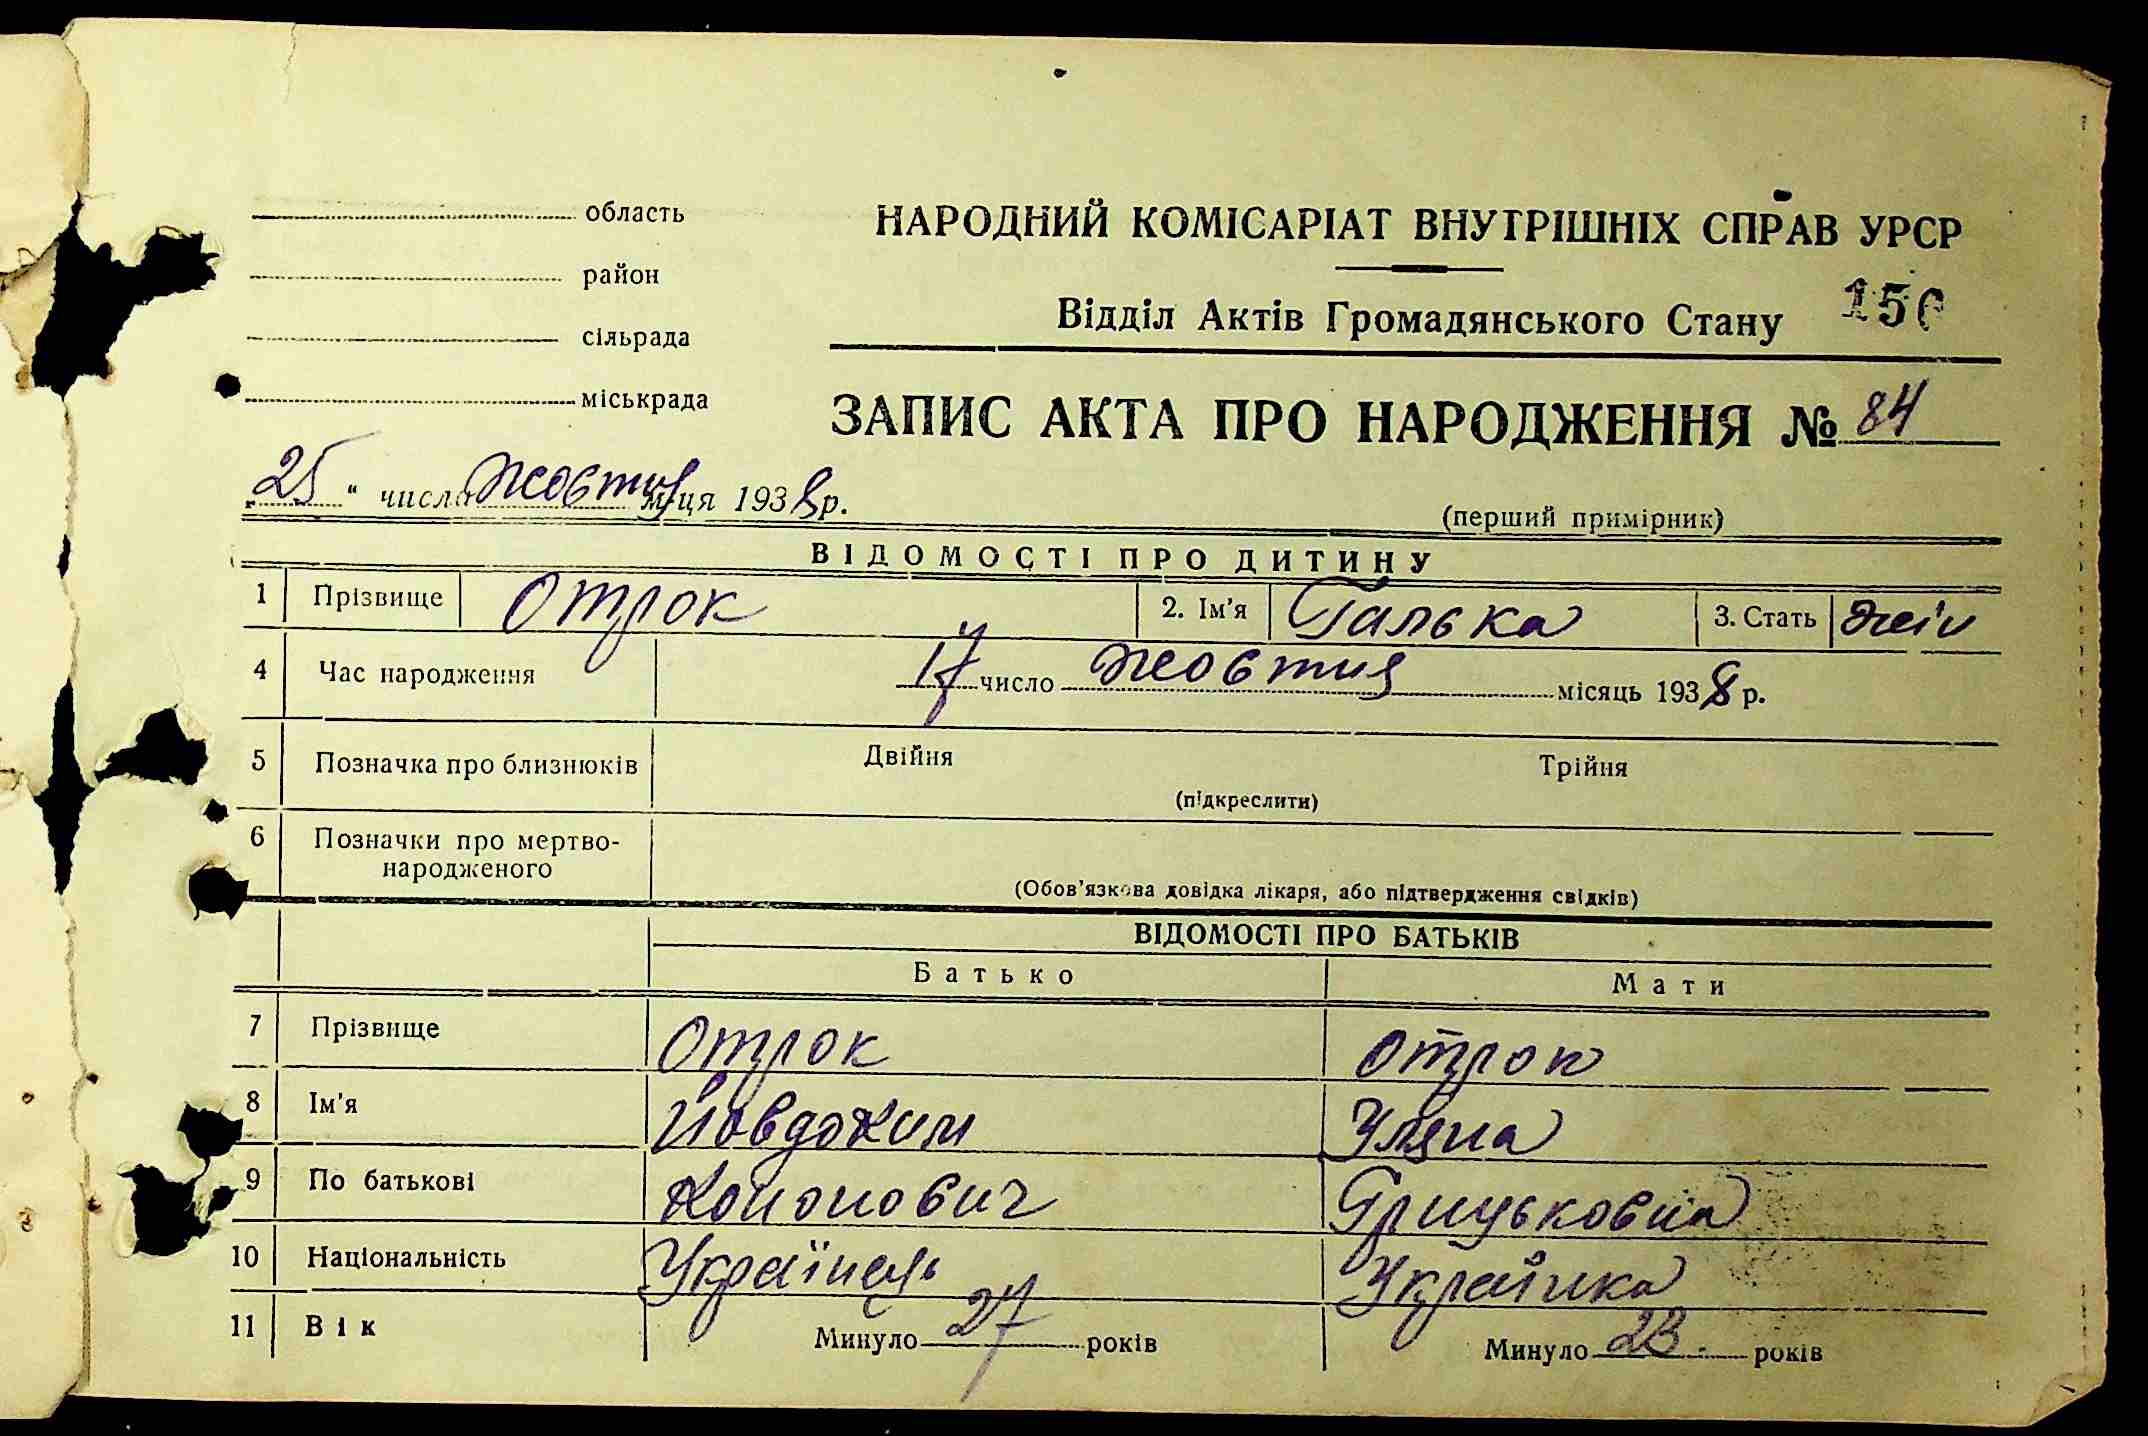 область
район
сільрада
міськрада
НАРОДНИЙ КОМІСАРІАТ ВНУТРІШНІХ СПРАВ УРСР
Відділ Актів Громадянського Стану 150
ЗАПИС АКТА ПРО НАРОДЖЕННЯ № 84
„25“ числа жовтня м-ця 1938 р.
(перший примірник)
ВІДОМОСТІ ПРО ДИТИНУ
1 Прізвище Отрок 2. Ім'я Галька 3. Стать жін
4 Час народження 17 число жовтня місяць 1938 р.
5 Позначка про близнюків Двійня Трійня
(підкреслити)
6 Позначки про мертво-
народженого
(Обов'язкова довідка лікаря, або підтвердження свідків)
ВІДОМОСТІ ПРО БАТЬКІВ
Батько Мати
7 Прізвище Отрок Отрок
8 Ім'я Йовдоким Уляна
9 По батькові Кононович Грицьковна
10 Національність Українець Українка
11 Вік Минуло 27 років Минуло 23 років